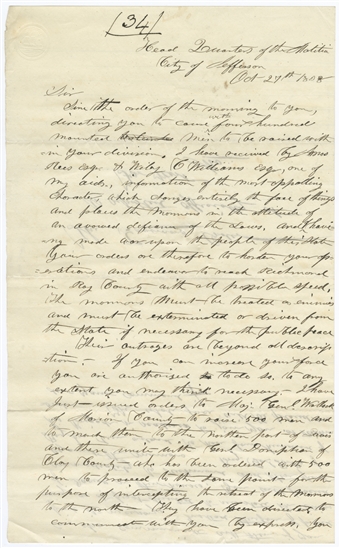 [34]
Head Quarters of the Militia
City of Jefferson
Oct 27th 1838
Sir
Since the order of the morning to you,
directing you to come with four hundred
mounted men to be raised with
in your division, I have received by Amos
Rees esqr & Wiley C Williams Esq one of
my aids, information of the most appalling
character, which changes entirely the face of things
and places the Mormons in the attitude of
an avowed defiance of the Laws, and of having
made war upon the people of this State
Your orders are therefore to hasten your op
erations and endeavor to reach Richmond
in Ray County with all possible speed,
The mormons must be treated as enemies
and must be exterminated or driven from
the State if necessary for the public peace
Their outrages are beyond all descrip
tion, - If you can increase your force
you are authorised to do so, to any
extent you may think necessary. I have
just issued orders to Maj. Genl
of Marion County to raise 500 men and
to march them to the northern part of
and there unite with Genl Doniphan of
Clay County who has been ordered with 500
men to proceed to the same point for the
purpose of intercepting the retreat of the Mormons
to the north They have been directed to
communicate with you by express, You